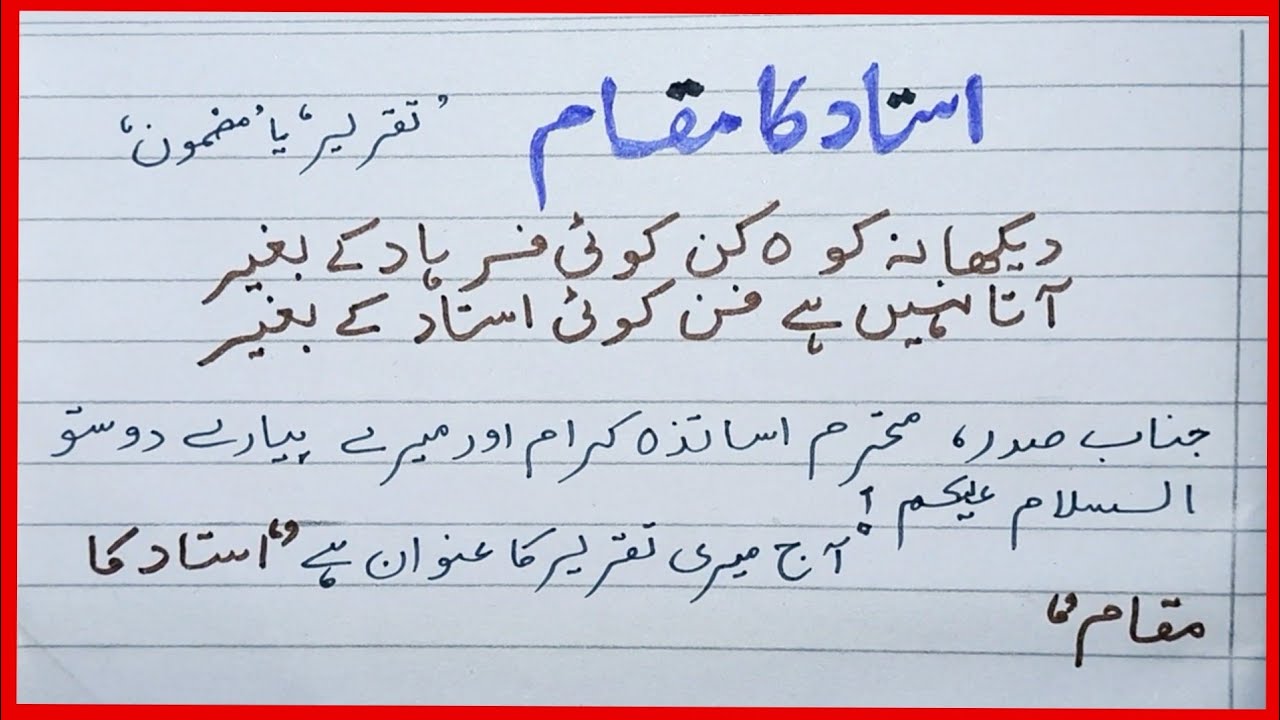 استاد کا مقام ’تقریر‘ یا ’مضمون‘
دیکھا نہ کوہ کن کوئی فرہاد کے بغیر
آتا نہیں ہے فن کوئی استاد کے بغیر
جناب صدر، محترم اساتذہ کرام اور میرے پیارے دوستو
السلام علیکم!
آج میری تقریر کا عنوان ہے “استاد کا
مقام”